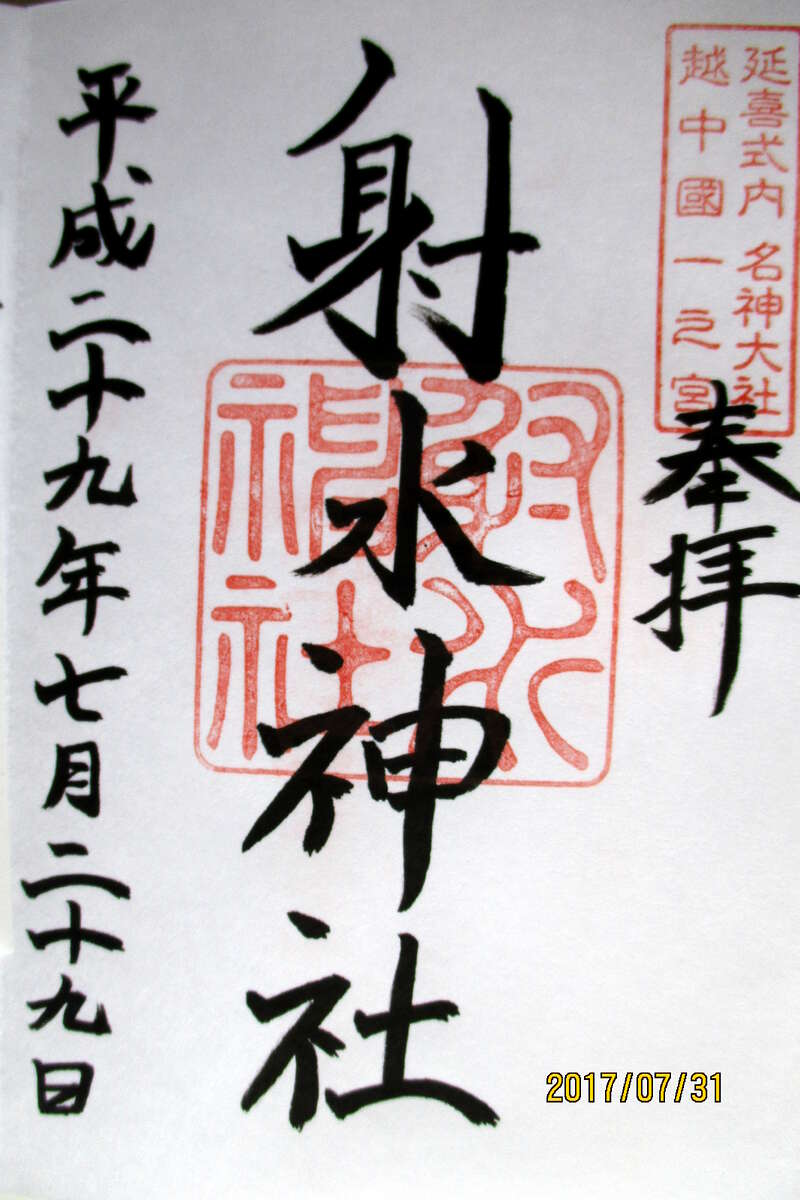 延喜式内 名神大社
越中國一之宮
奉拝
射水神社
射水神社
平成二十九年七月二十九日
2017/07/31